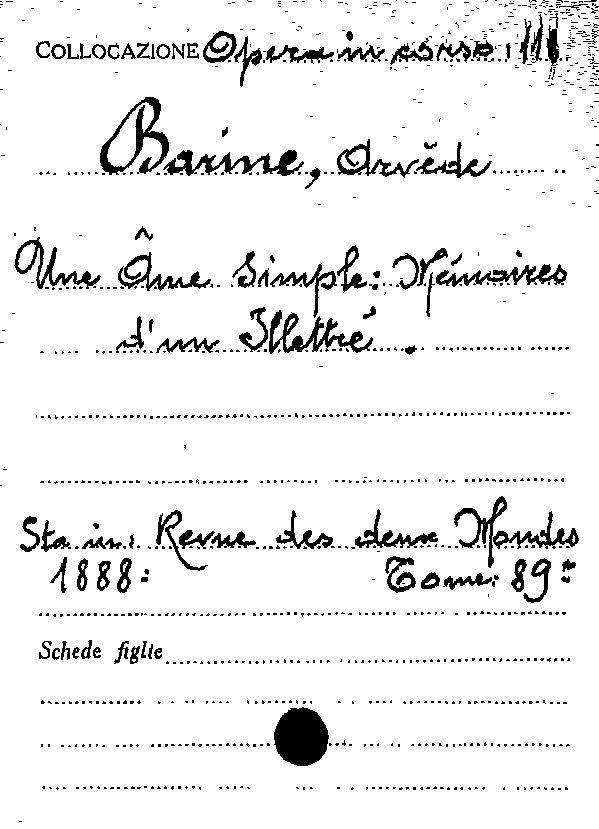 COLLOCAZIONE Opera in corso: III
Barine, Arvède
Une Âme Simple: Mémoires
d'un Illettré.
Sta in: Revue des deux Mondes
1888: Tome: 89º
Schede figlie